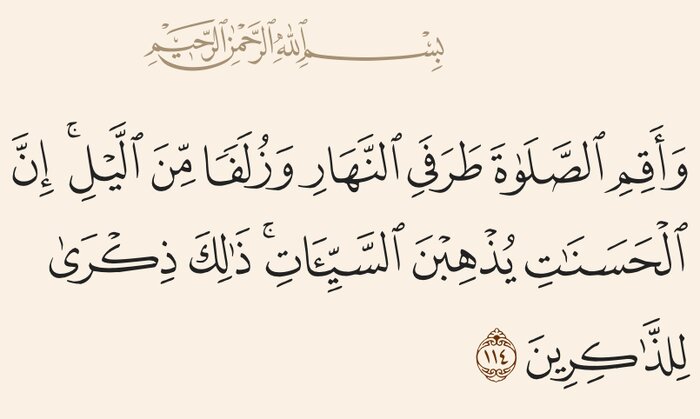 بِسْمِ ٱللَّهِ ٱلرَّحْمَٰنِ ٱلرَّحِيمِ
وَأَقِمِ ٱلصَّلَوٰةَ طَرَفَيِ ٱلنَّهَارِ وَزُلَفًا مِّنَ ٱلَّيْلِ ۚ إِنَّ
ٱلْحَسَنَٰتِ يُذْهِبْنَ ٱلسَّيِّـَٔاتِ ۚ ذَٰلِكَ ذِكْرَىٰ
لِلذَّٰكِرِينَ ١١٤